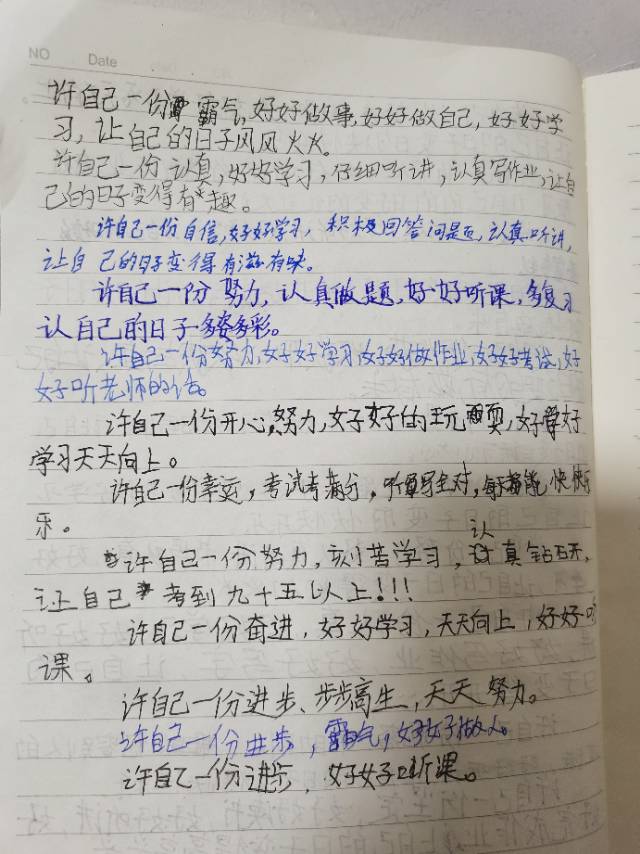 NO Date
许自己一份霸气,好好做事,好好做自己,好好学
习,让自己的日子风风火火。
许自己一份认真,好好学习,仔细听讲,认真写作业,让自
己的日子变得有趣。
许自己一份自信,好好学习,积极回答问题,认真听讲,
让自己的日子变得有滋有味。
许自己一份努力,认真做题,好好听课,多复习
认自己的日子多姿多彩。
许自己一份努力,好好学习,好好做作业,好好考试,好
好听老师的话。
许自己一份开心,努力,好好的玩耍,好好
学习天天向上。
许自己一份幸运,考试考满分,听写全对,每天都能快快乐
乐。
许自己一份努力,刻苦学习,认真钻研,
让自己考到九十五以上!!!
许自己一份奋进,好好学习,天天向上,好好听
课。
许自己一份进步、步步高生,天天努力。
许自己一份进步,霸气,好好做人。
许自己一份进步,好好听课。